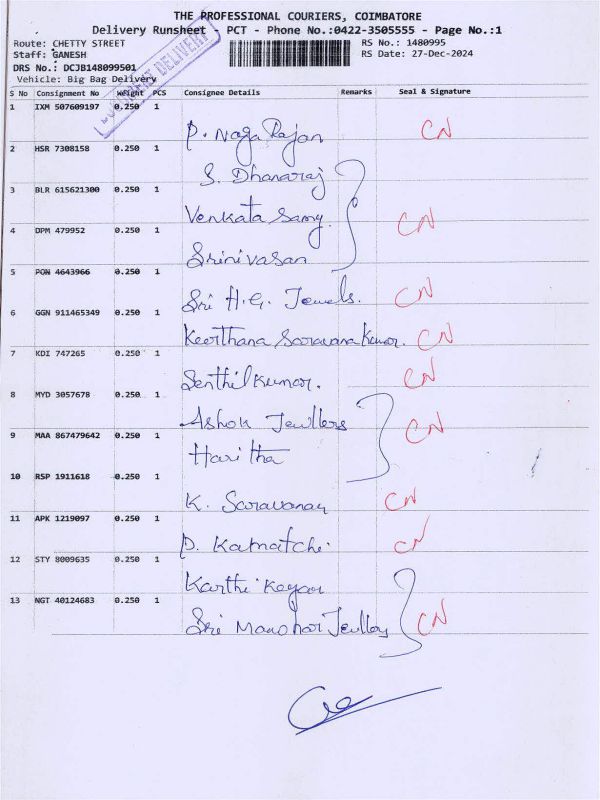 THE PROFESSIONAL COURIERS, COIMBATORE
Delivery Runsheet - PCT - Phone No.:0422-3505555 - Page No.:1
Route: CHETTY STREET
RS No.: 1480995
Staff: GANESH
RS Date: 27-Dec-2024
DRS No.: DCJB148099501
Vehicle: Big Bag Delivery
DELIVERY
S No Consignment No Weight PCS Consignee Details Remarks Seal & Signature
1 IXM 507609197 0.250 1 P. Naga Rajan CN
2 HSR 7308158 0.250 1 S. Dhanaraj
3 BLR 615621300 0.250 1 Venkata Samy CN
4 DPM 479952 0.250 1 Srinivasan
5 PON 4643966 0.250 1 Sri H.G. Jewels. CN
6 GGN 911465349 0.250 1 Keerthana Saravana Kumar. CN
7 KDI 747265 0.250 1 Senthil Kumar. CN
8 MYD 3057678 0.250 1 Ashok Jewllers CN
9 MAA 867479642 0.250 1 Haritha
10 RSP 1911618 0.250 1 K. Saravanan CN
11 APK 1219097 0.250 1 P. Kamatchi CN
12 STY 8009635 0.250 1 Karthikeyan
13 NGT 40124683 0.250 1 Sri Manohar Jewllery CN